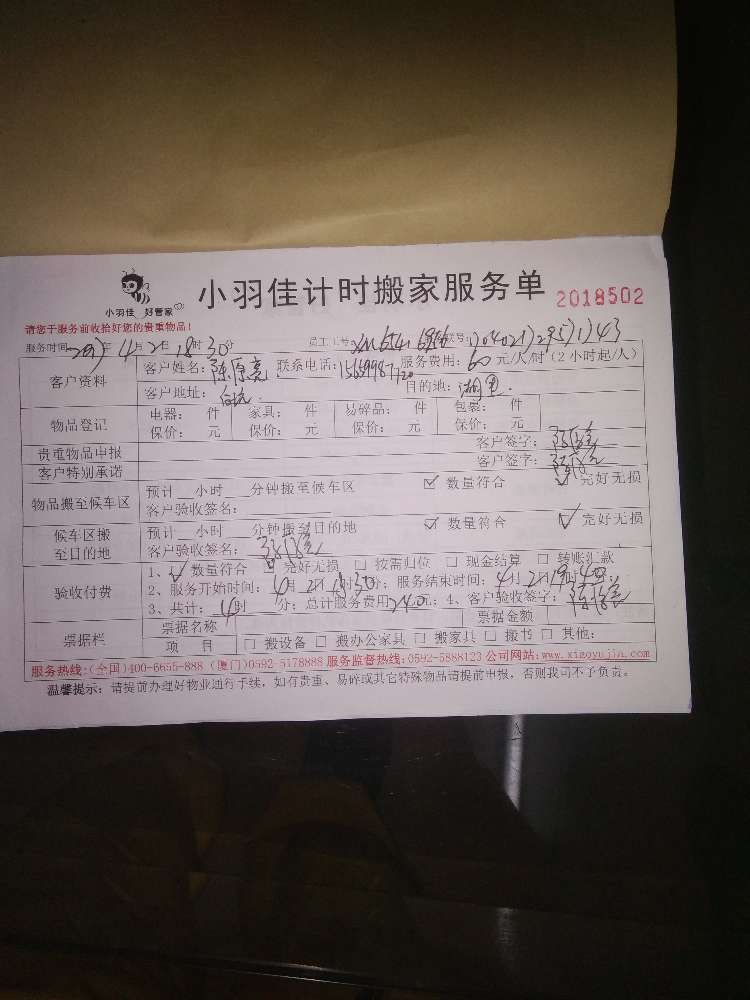 小羽佳计时搬家服务单 2018502
小羽佳 好管家
请您于服务前收拾好您的贵重物品!
服务时间 年 4月2日18时30分 员工工号
客户资料 客户姓名:陈原亮 联系电话: 服务费用:60元/人/时(2小时起/人)
客户地址: 目的地:湖里.
物品登记 电器: 件 家具: 件 易碎品: 件 包裹: 件
保价: 元 保价: 元 保价: 元 保价: 元
贵重物品申报 客户签字:
客户特别承诺 客户签字:
物品搬至候车区 预计__小时__分钟搬至候车区 ☑ 数量符合 ☑ 完好无损
客户验收签名:
候车区搬至目的地 预计__小时__分钟搬至目的地 ☑ 数量符合 ☑ 完好无损
客户验收签名:
验收付费 1、☑ 数量符合 ☑ 完好无损 □ 按需归位 □ 现金结算 □ 转账汇款
2、服务开始时间:4月2日18时30分;服务结束时间:4月2日19时
3、共计:4时 分;总计服务费用240元;4、客户验收签字:
票据栏 票据名称 票据金额
项 目 □ 搬设备 □ 搬办公家具 □ 搬家具 □ 搬书 □ 其他:
服务热线:(全国)400-6655-888 (厦门)0592-5178888 服务监督热线:0592-5888123 公司网站:www.xiaoyujia.com
温馨提示:请提前办理好物业通行手续,如有贵重、易碎或其它特殊物品请提前申报,否则我司不予负责。